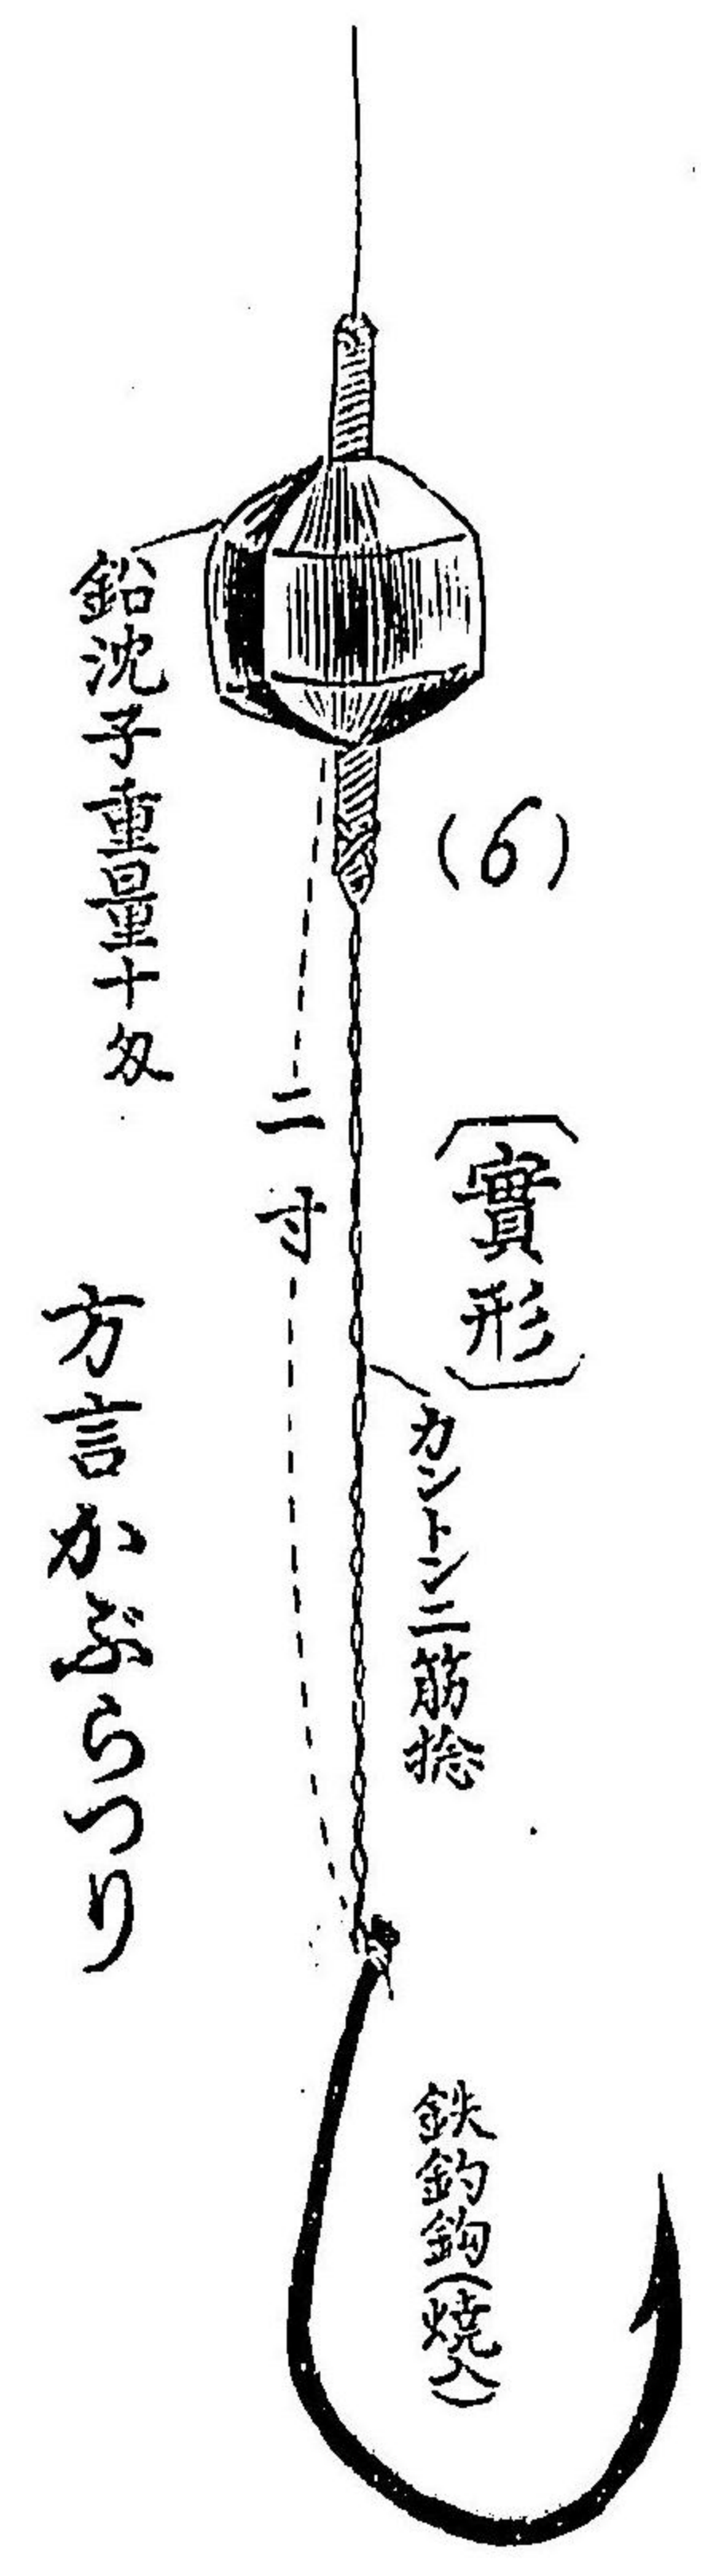 (6)
〔實形〕
鉛沈子重量十匁
二寸
カントン二筋捻
方言かぶらつり
鉄釣鈎(燒入)